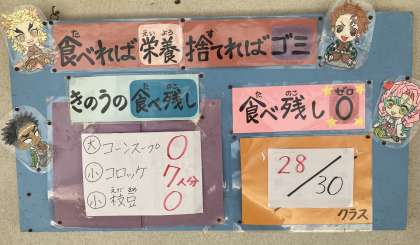 食べれば栄養捨てればゴミ
きのうの食べ残し
大 コーンスープ 0
小 コロッケ 7人分
小 枝豆 0
食べ残し0
28/30
クラス